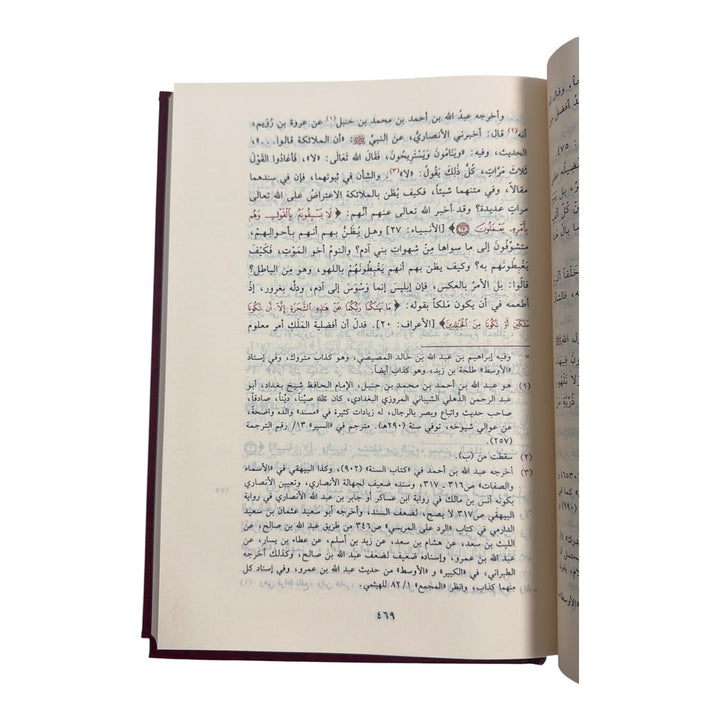 وأخرجه عبدُ الله بن أحمد بن محمد بن حنبل(١) عن عروة بن رُوَيم،
أنه(٢) قال: أخبرني الأنصاري، عن النبيِّ ﷺ: «أن الملائكة قالوا...»،
الحديث، وفيه: «وَيَنامُونَ وَيَسْتَرِيحُونَ، فَقَالَ اللهُ تَعَالَى: «لا»، فَأَعَادُوا القَوْلَ
ثَلاثَ مَرَّاتٍ، كُلُّ ذَلِكَ يَقُولُ: «لا»(٣). والشأن في ثبوتهما، فإن في سندهما
مقالاً، وفي متنهما شيئاً، فكيف يُظن بالملائكة الاعتراضُ على الله
مراتٍ عديدة؟ وقد أخبر الله تعالى عنهم أنَّهم: ﴿لَا يَسْبِقُونَهُ بِالْقَوْلِ وَهُم
بِأَمْرِهِ يَعْمَلُونَ ٢٧﴾ [الأنبياء: ٢٧] وهل يُظَنُّ بهم أنهم بأحوالِهِمْ،
متشرِّفُونَ إلى ما سواها مِنْ شهواتِ بني آدم؟ والنومُ أخو المَوْتِ، فَكَيْفَ
يَغْبِطُونَهم به؟ وكيف يظن بهم أنهم يَغْبِطُونَهُمْ باللهو، وهو مِنَ الباطل؟
قالوا: بل الأمرُ بالعكس، فإن إبليس إنما وَسْوَسَ إلى آدم، ودلَّه بغرور، إذْ
أطعمه في أن يكون مَلَكاً بقوله: ﴿مَا نَهَاكُمَا رَبُّكُمَا عَنْ هَذِهِ الشَّجَرَةِ إِلَّا أَن تَكُونَا
مَلَكَيْنِ أَوْ تَكُونَا مِنَ الْخَالِدِينَ﴾ [الأعراف: ٢٠]. فدلَّ أن أفضلية المَلَكِ أمر معلوم
= وفيه إبراهيم بن عبد الله بن خالد المصيصي، وهو كذاب متروك، وفي إسناد
«الأوسط» طلحة بن زيد، وهو كذاب أيضاً.
(١) هو عبد الله بن أحمد بن محمد بن حنبل، الإمام الحافظ شيخ بغداد، أبو
عبد الرحمن الذهلي الشيباني المروزي البغدادي، كان ثقة صيِّناً، ديِّناً، صادقاً،
صاحب حديث واتباع وبصر بالرجال، له زيادات كثيرة في «مسند» والده واضحة،
عن عوالي شيوخه، توفي سنة (٢٩٠هـ). مترجم في «السير» ١٣/ رقم الترجمة
(٢٥٧).
(٢) سقطت من (ب).
(٣) أخرجه عبد الله بن أحمد في «كتاب السنة» (٩٠٢)، وكذا البيهقي في «الأسماء
والصفات» ص٣١٦ ـ ٣١٧، وسنده ضعيف لجهالة الأنصاري، وتعيين الأنصاري
بكونه أنس بن مالك في رواية ابن عساكر أو جابر بن عبد الله الأنصاري في رواية
البيهقي ص٣١٧ لا يصح، لضعف السند، وأخرجه أبو سعيد عثمان بن سعيد
الدارمي في كتاب «الرد على المريسي» ص٣٤ من طريق عبد الله بن صالح، عن
الليث بن سعد، عن هشام بن سعد، عن زيد بن أسلم، عن عطاء بن يسار، عن
عبد الله بن عمرو، وإسناده ضعيف لضعف عبد الله بن صالح، وكذلك أخرجه
الطبراني، في «الكبير» و «الأوسط» من حديث عبد الله بن عمرو، وفي إسناد كل
منهما كذاب، وانظر «المجمع» ٨٢/١ للهيثمي.
٤٦٩